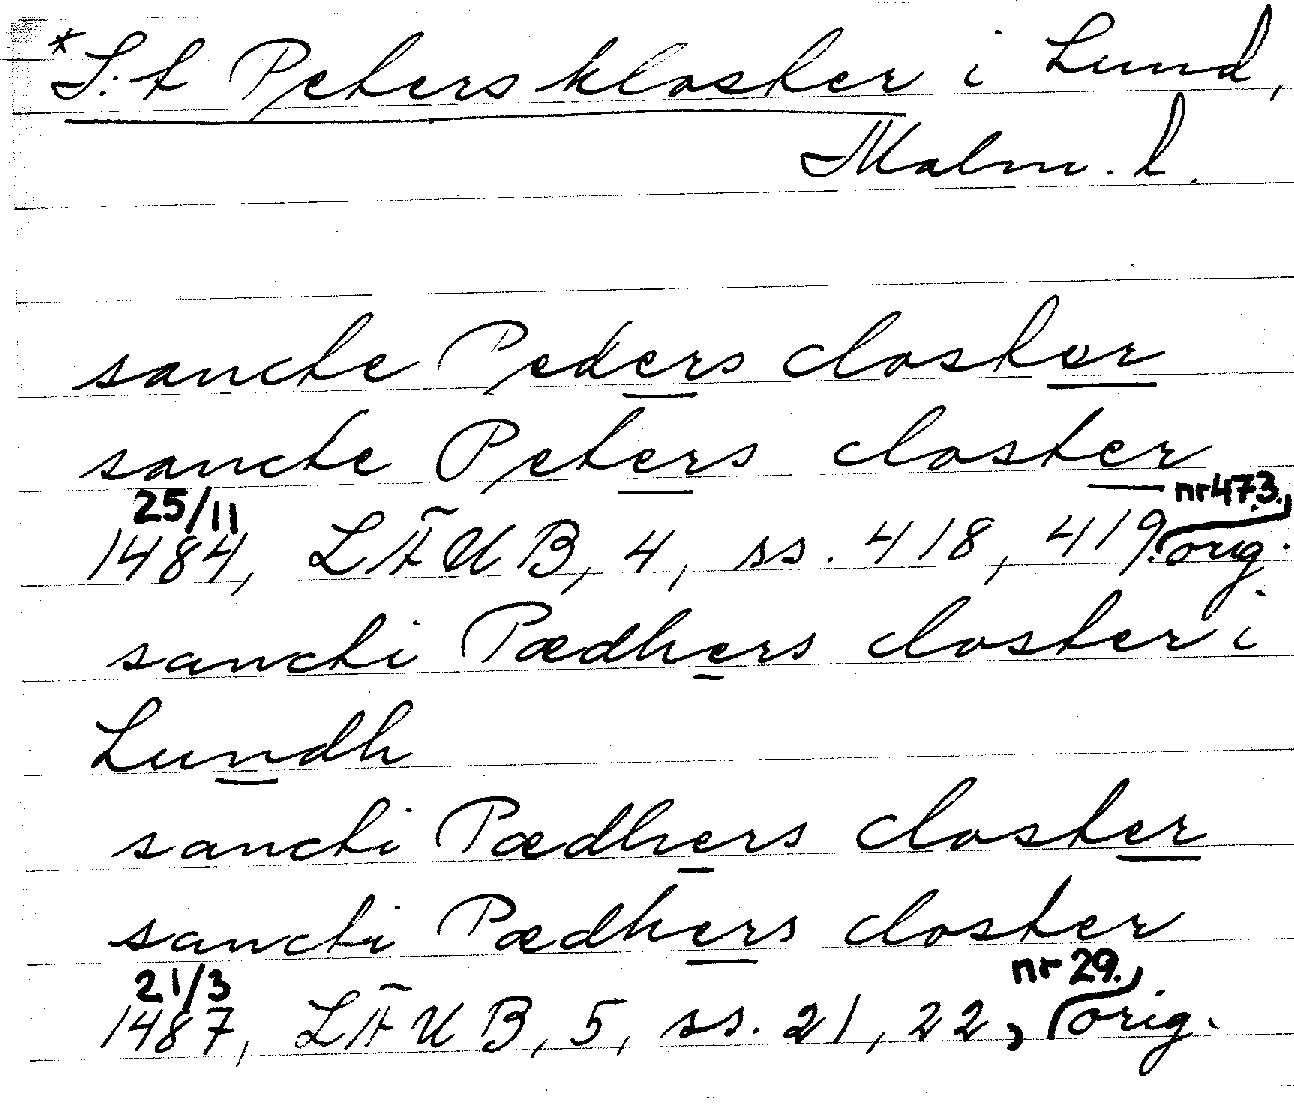 *S:t Peters kloster i Lund,
Malm. l.
sancte Peders closter
sancte Peters closter
25/11 nr 473.,
1484, LÄUB, 4, ss. 418, 419 orig.
sancti Pædhers closter i
Lundh
sancti Pædhers closter
sancti Pædhers closter
21/3 nr 29.,
1487, LÄUB, 5, ss. 21, 22, orig.